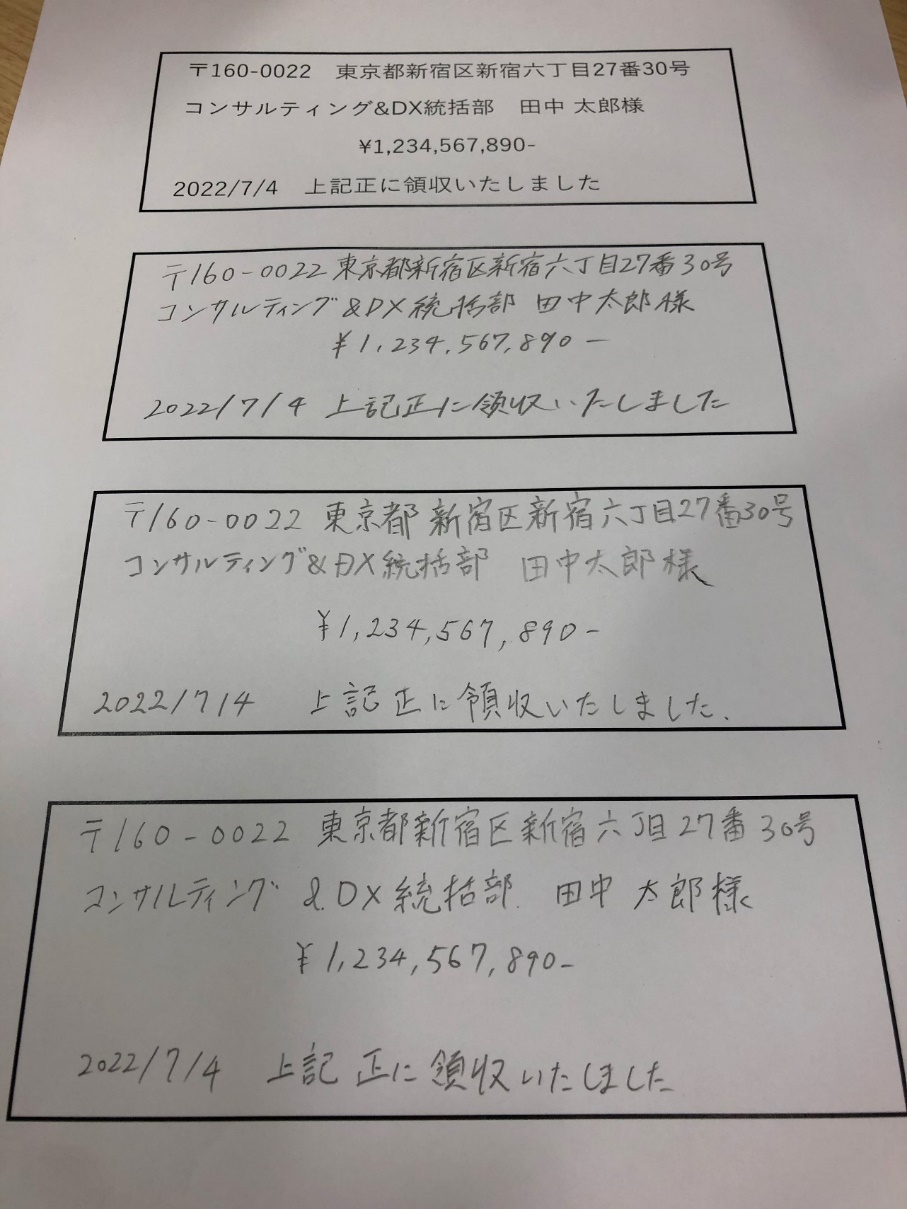 〒160-0022　東京都新宿区新宿六丁目27番30号
コンサルティング&DX統括部　田中 太郎様
¥1,234,567,890-
2022/7/4　上記正に領収いたしました
〒160-0022 東京都新宿区新宿六丁目27番30号
コンサルティング&DX統括部 田中太郎様
¥1,234,567,890-
2022/7/4 上記正に領収いたしました
〒160-0022 東京都新宿区新宿六丁目27番30号
コンサルティング&DX統括部 田中太郎様
¥1,234,567,890-
2022/7/4 上記正に領収いたしました.
〒160-0022 東京都新宿区新宿六丁目27番30号
コンサルティング &DX統括部. 田中 太郎様
¥1,234,567,890-
2022/7/4 上記 正に領収いたしました